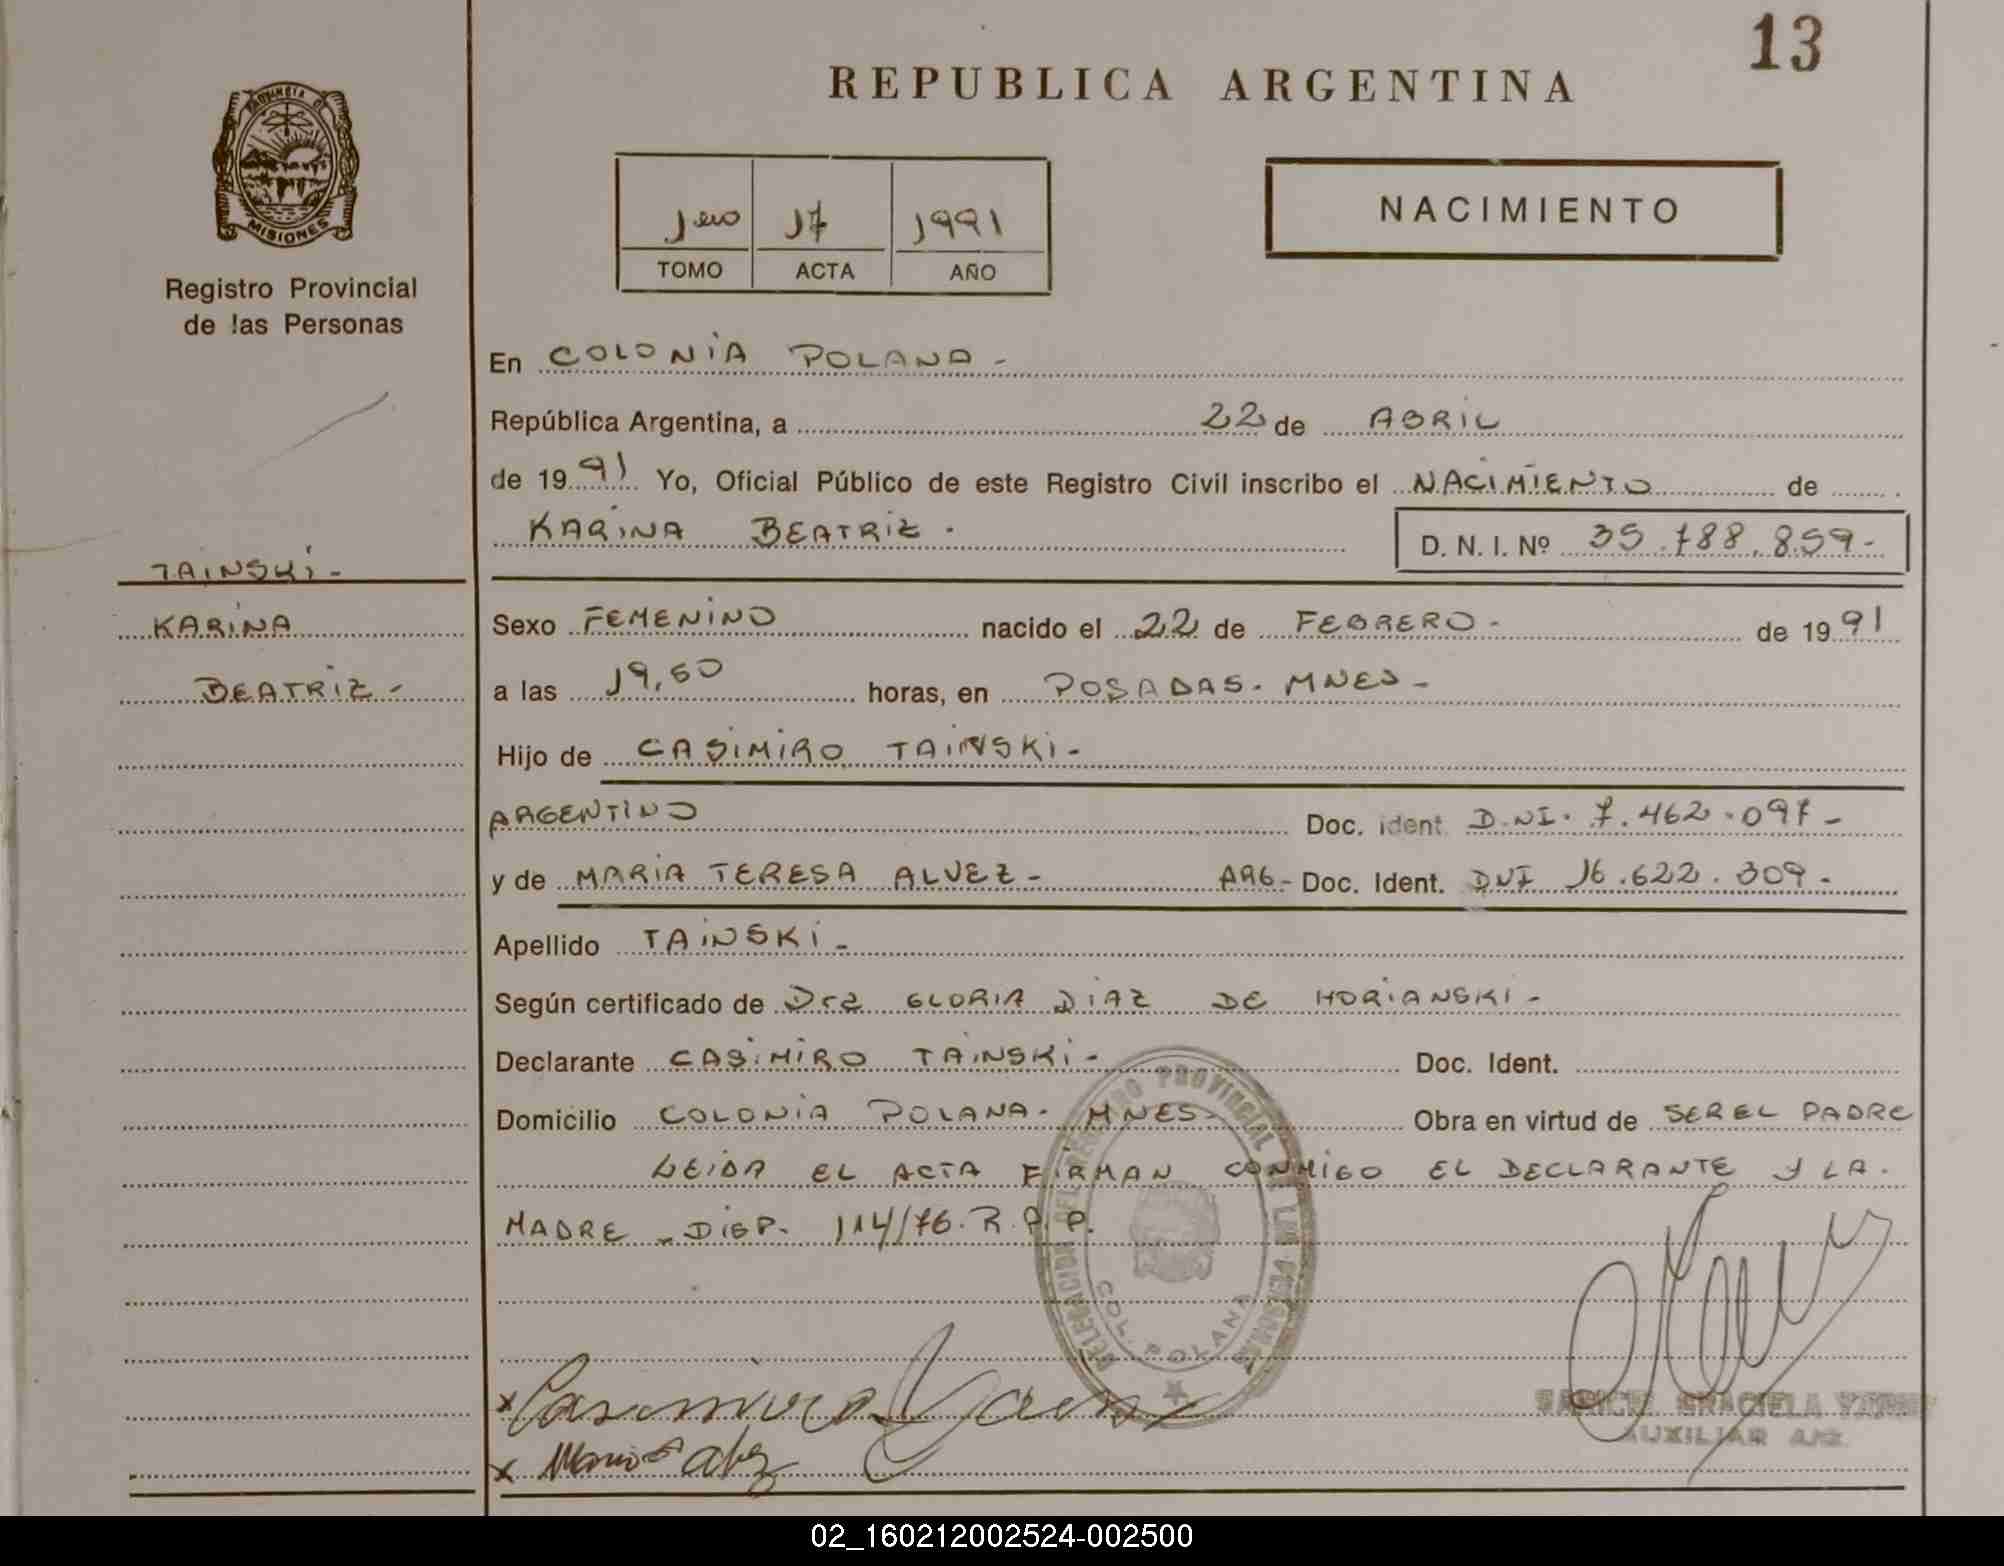 13
REPUBLICA ARGENTINA
PROVINCIA DE
MISIONES
Registro Provincial
de las Personas
1ero 17 1991
TOMO ACTA AÑO
NACIMIENTO
En COLONIA POLANA -
República Argentina, a 22 de ABRIL
de 1991 Yo, Oficial Público de este Registro Civil inscribo el NACIMIENTO de
KARINA BEATRIZ - D. N. I. Nº 35.788.859-
TAINSKI -
KARINA
BEATRIZ -
Sexo FEMENINO nacido el 22 de FEBRERO - de 1991
a las 19,50 horas, en POSADAS - MNES -
Hijo de CASIMIRO TAINSKI -
ARGENTINO Doc. ident. D.NI. 7.462.097 -
y de MARIA TERESA ALVEZ - ARG - Doc. Ident. DNI 16.622.309 -
Apellido TAINSKI -
Según certificado de Dra GLORIA DIAZ DE HORIANSKI -
Declarante CASIMIRO TAINSKI - Doc. Ident.
Domicilio COLONIA POLANA - MNES - Obra en virtud de SER EL PADRE
LEIDA EL ACTA FIRMAN CONMIGO EL DECLARANTE Y LA
MADRE - DISP. 114/76. R.P.P.
DELEGACION DEL REGISTRO PROVINCIAL DE LAS PERSONAS
COL. POLANA
x Casimiro
x Maria
GRACIELA
AUXILIAR
02_160212002524-002500